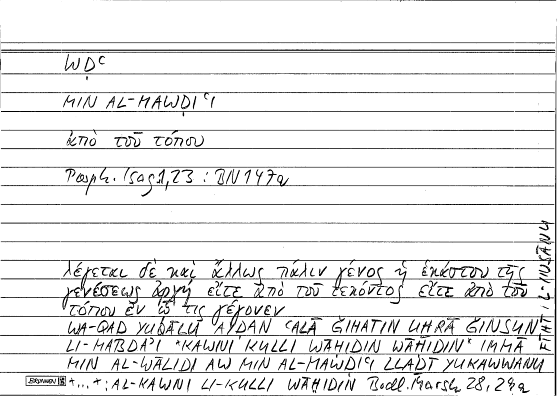 WḌʿ
MIN AL-MAWḌIʿI
ἀπὸ τοῦ τόπου
Porph. Isag 1,23 : BN 147a
λέγεται δὲ καὶ ἄλλως πάλιν γένος ἡ ἑκάστου τῆς
γενέσεως ἀρχὴ εἴτε ἀπὸ τοῦ τεκόντος εἴτε ἀπὸ τοῦ
τόπου ἐν ᾧ τις γέγονεν
WA-QAD YUQĀLU AYḌAN ʿALĀ ǦIHATIN UḪRĀ ǦINSUN
LI-MABDAʾI *KAWNI KULLI WĀḤIDIN WĀḤIDIN* IMMĀ
MIN AL-WĀLIDI AW MIN AL-MAWḌIʿI LLAḎĪ YUKAWWANU
*...*: AL-KAWNI LI-KULLI WĀḤIDIN Bodl. Marsh 28, 29a
FĪHI L-INSĀNU
BRUNNEN